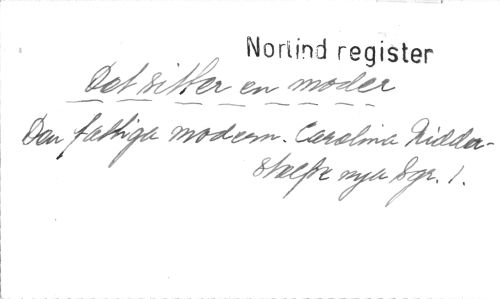 Norlind register
Det sitter en moder
Den fattiga modern. Carolina Ridder-
stolpe nya Sgr. 1.